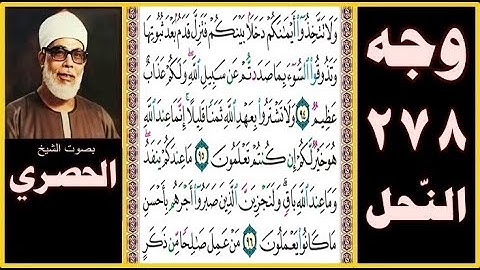 وجه
٢٧٨
النّحل
وَلَا تَتَّخِذُوٓا۟ أَيْمَٰنَكُمْ دَخَلًۢا بَيْنَكُمْ فَتَزِلَّ قَدَمٌۢ بَعْدَ ثُبُوتِهَا
وَتَذُوقُوا۟ ٱلسُّوٓءَ بِمَا صَدَدتُّمْ عَن سَبِيلِ ٱللَّهِ وَلَكُمْ عَذَابٌ
عَظِيمٌ ٩٤ وَلَا تَشْتَرُوا۟ بِعَهْدِ ٱللَّهِ ثَمَنًا قَلِيلًا إِنَّمَا عِندَ ٱللَّهِ
هُوَ خَيْرٌ لَّكُمْ إِن كُنتُمْ تَعْلَمُونَ ٩٥ مَا عِندَكُمْ يَنفَدُ
وَمَا عِندَ ٱللَّهِ بَاقٍ وَلَنَجْزِيَنَّ ٱلَّذِينَ صَبَرُوٓا۟ أَجْرَهُم بِأَحْسَنِ
مَا كَانُوا۟ يَعْمَلُونَ ٩٦ مَنْ عَمِلَ صَٰلِحًا مِّن ذَكَرٍ
بصوت الشيخ
الحصري